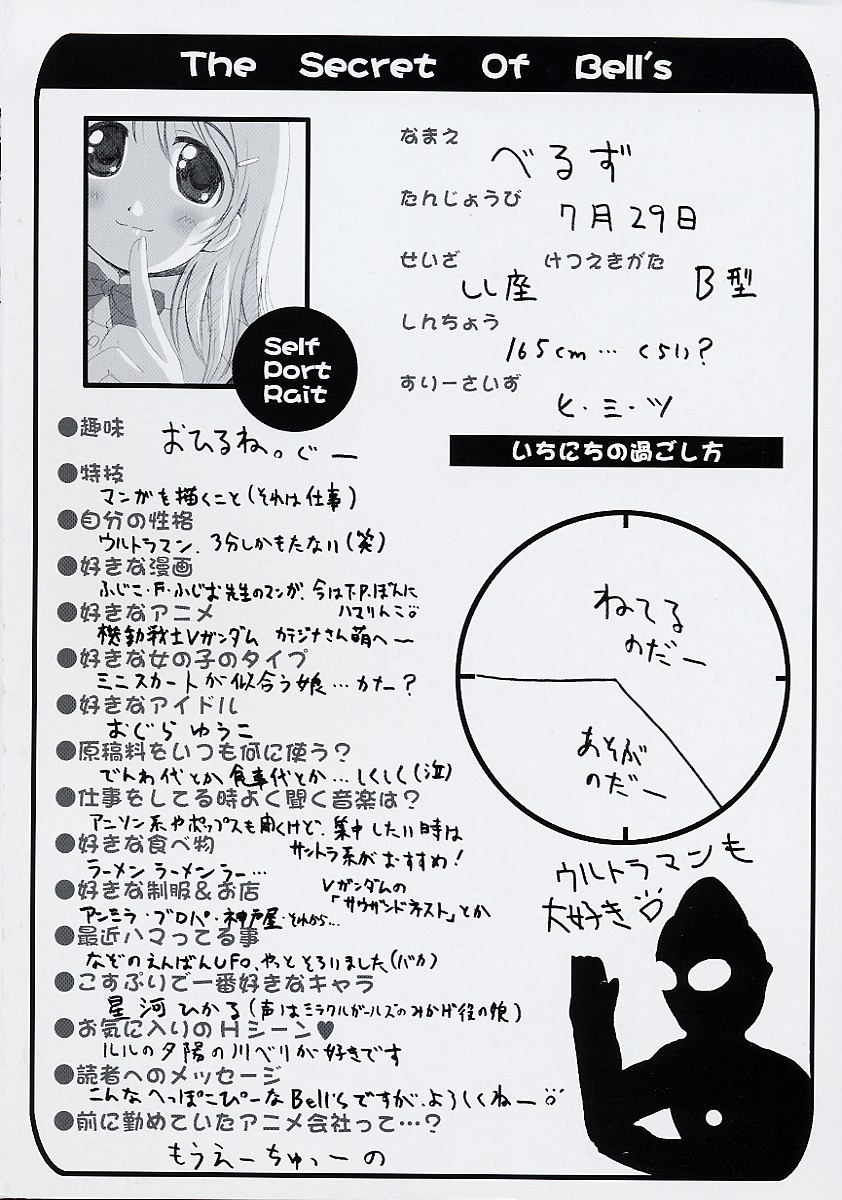 The Secret Of Bell's
Self
Port
Rait
なまえ
べるず
たんじょうび
7月29日
せいざ
しし座
けつえきがた
B型
しんちょう
165cm… くらい?
すりーさいず
ヒ・ミ・ツ
●趣味
おひるね。ぐー
●特技
マンガを描くこと(それは仕事)
●自分の性格
ウルトラマン、3分しかもたない(笑)
●好きな漫画
ふじこ・F・ふじお先生のマンガ、今はT.P.ぼんに
ハマりんこ
●好きなアニメ
機動戦士Vガンダム カテジナさん萌へー
●好きな女の子のタイプ
ミニスカートが似合う娘…かな?
●好きなアイドル
おぐら ゆうこ
●原稿料をいつも何に使う?
でんわ代とか食事代とか…しくしく(泣)
●仕事をしてる時よく聞く音楽は?
アニソン系やポップスも聞くけど、集中したい時は
サントラ系がおすすめ!
Vガンダムの
「サウザンドネスト」とか
●好きな食べ物
ラーメン ラーメン ラー…
●好きな制服&お店
アンミラ・ブロパ・神戸屋・それから…
●最近ハマってる事
なぞのえんばんUFO、やっとそろいました(バカ)
●こすぷりで一番好きなキャラ
星河ひかる(声はミラクルガールズのみかげ役の娘)
●お気に入りのHシーン♥
ルルの夕陽の川べりが好きです
●読者へのメッセージ
こんなへっぽこぴーなBell'sですが、よろしくねー
●前に勤めていたアニメ会社って…?
もうえーちゅーの
いちにちの過ごし方
ねてる
のだー
あそぶ
のだー
ウルトラマンも
大好き